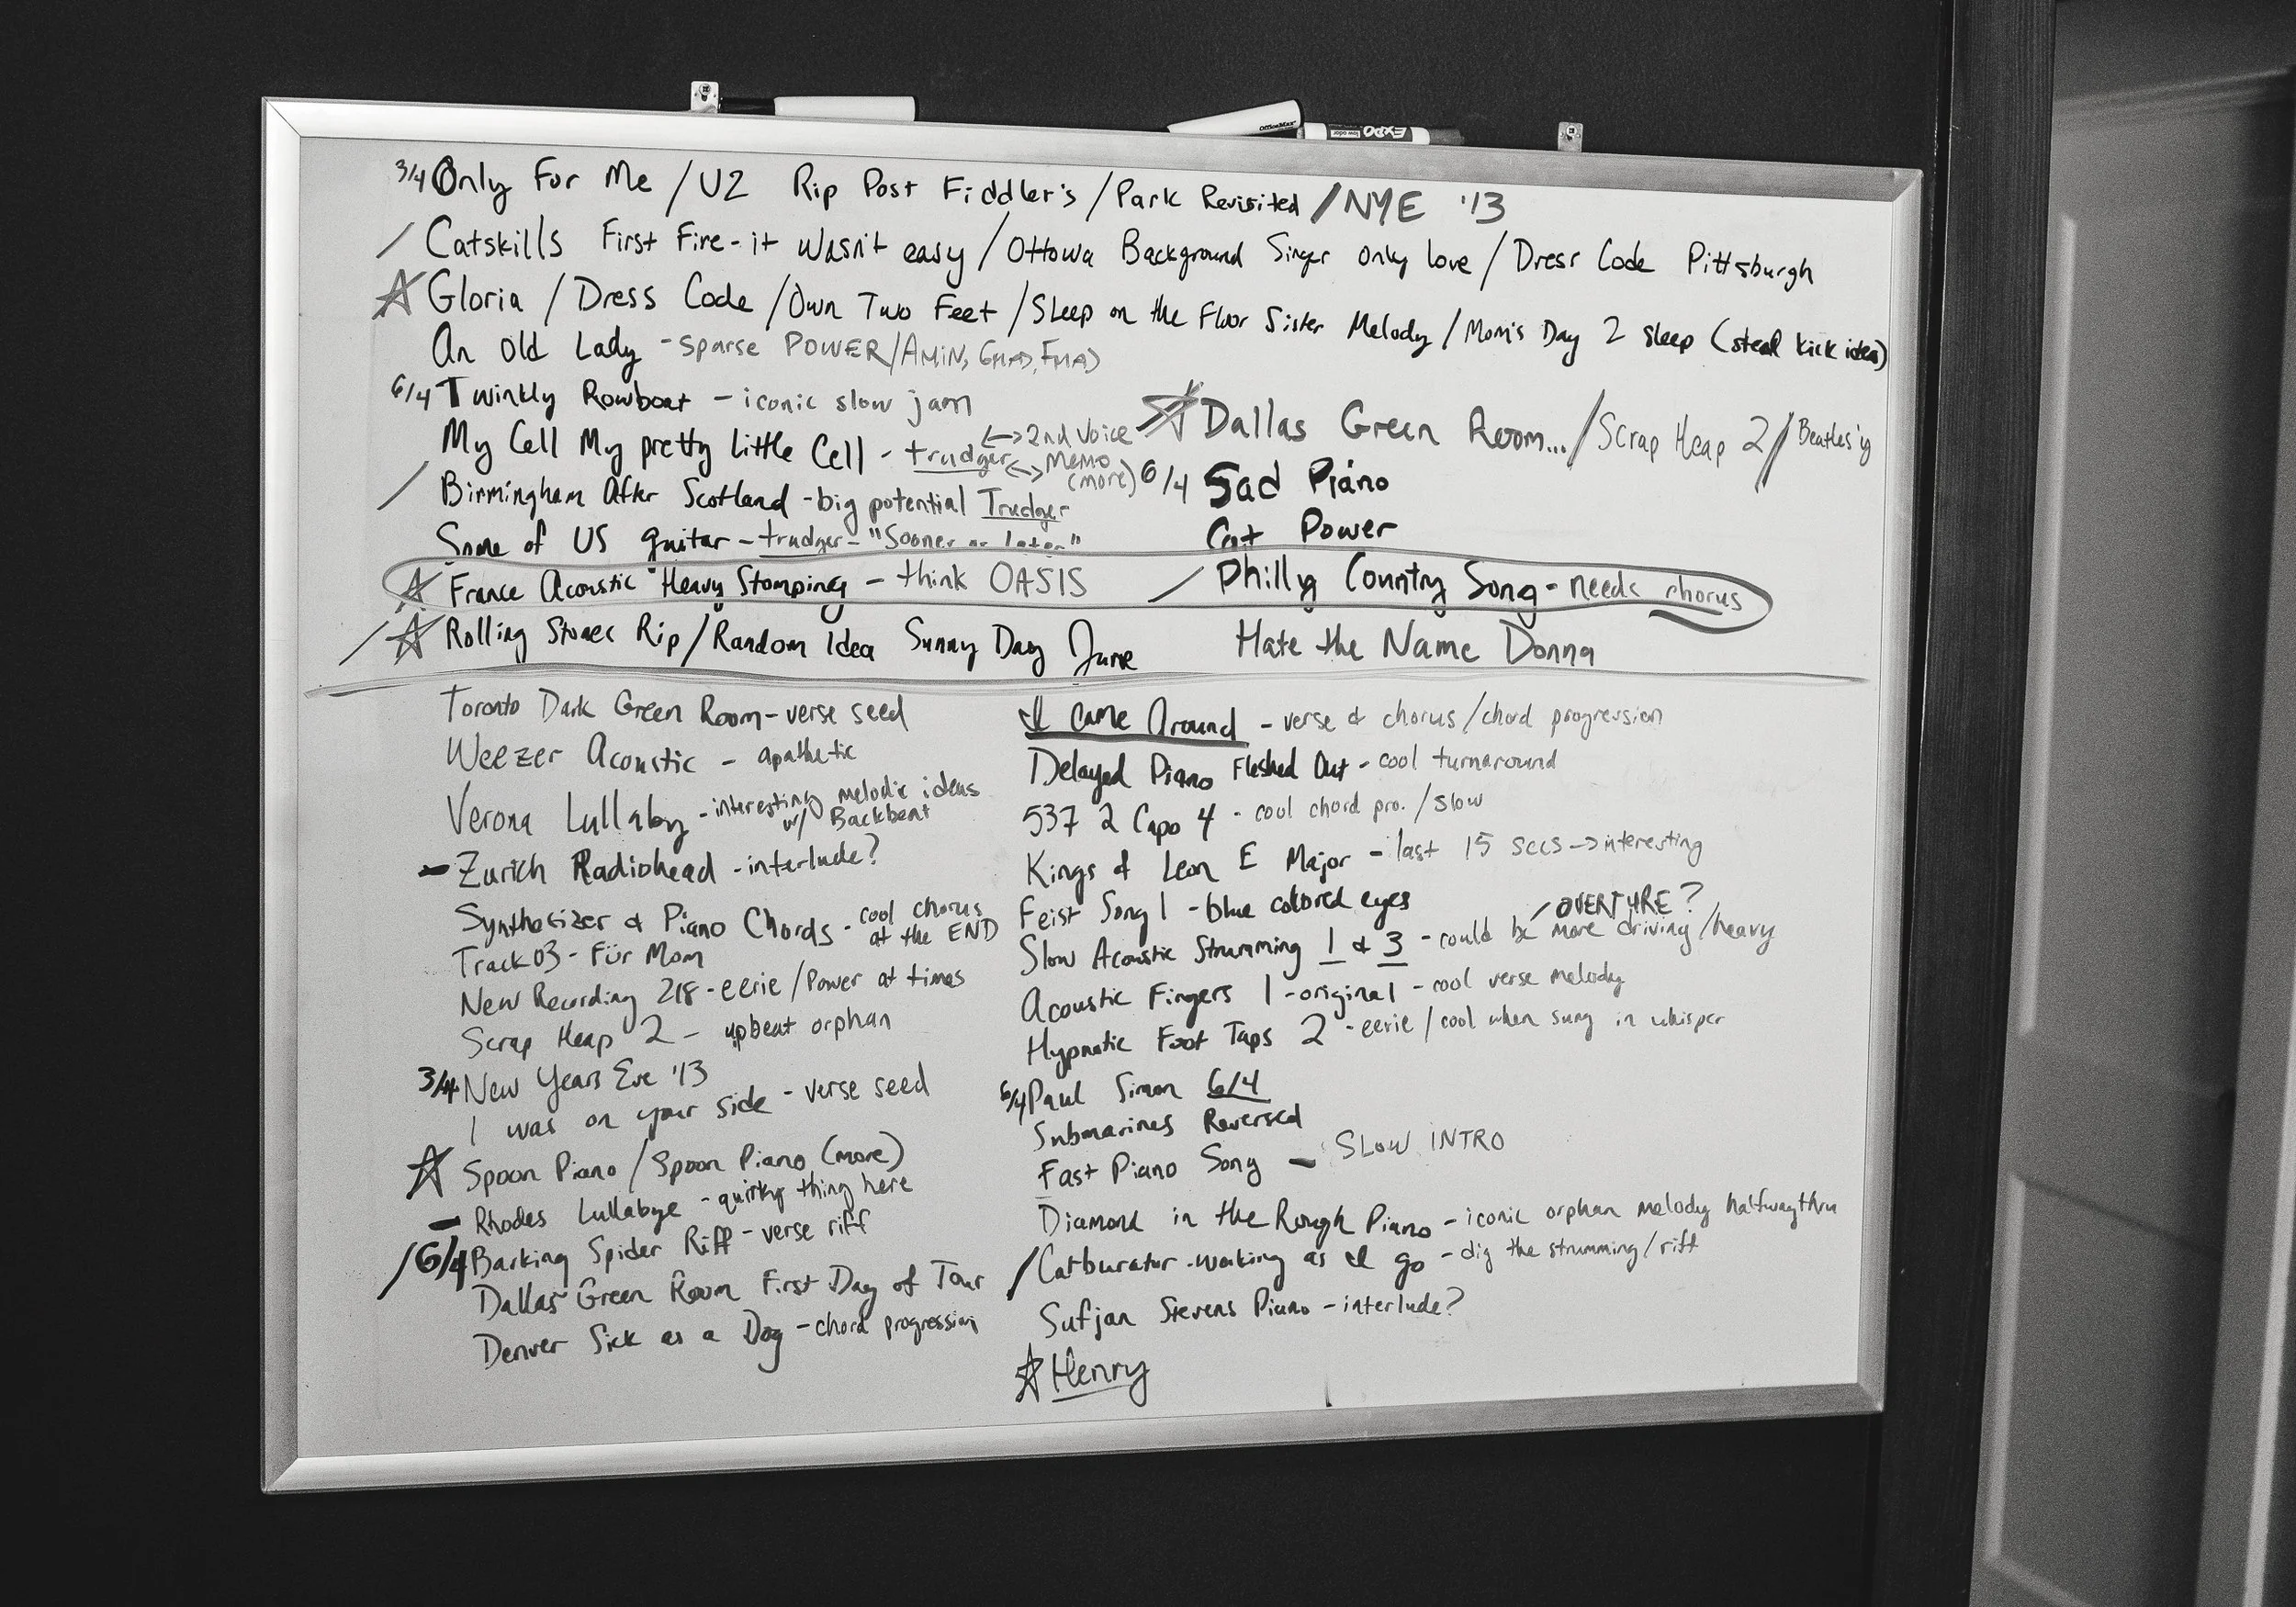 3/4 Only For Me / U2 Rip Post Fiddler's / Park Revisited / NYE '13
/ Catskills First Fire - it wasn't easy / Ottowa Background Singer only love / Dress Code Pittsburgh
☆ Gloria / Dress Code / Own Two Feet / Sleep on the Floor Sister Melody / Mom's Day 2 sleep (steal kick idea)
An Old Lady - sparse POWER / AMIN,
6/4 Twinkly Rowboat - iconic slow jam
My Cell My pretty Little Cell - trudger <-> 2nd Voice
<-> Memo
(more)
/ Birmingham After Scotland - big potential Trudger
Some of US guitar - trudger - "Sooner or later"
☆ France Acoustic "Heavy Stomping - think OASIS
/ ☆ Rolling Stones Rip / Random Idea Sunny Day June
☆ Dallas Green Room... / Scrap Heap 2 / Beatles'y
6/4 Sad Piano
Cat Power
/ Philly Country Song - needs chorus
Hate the Name Donna
Toronto Dark Green Room - verse seed
Weezer Acoustic - apathetic
Verona Lullaby - interesting melodic ideas
w/ Backbeat
- Zurich Radiohead - interlude?
Synthesizer & Piano Chords - cool chorus
at the END
Track 03 - Für Mom
New Recording 218 - eerie / Power at times
Scrap Heap 2 - upbeat orphan
3/4 New Years Eve '13
I was on your side - verse seed
☆ Spoon Piano / Spoon Piano (more)
- Rhodes Lullabye - quirky thing here
/ 6/4 Barking Spider Riff - verse riff
Dallas Green Room First Day of Tour
Denver Sick as a Dog - chord progression
I Came Around - verse & chorus / chord progression
Delayed Piano Fleshed Out - cool turnaround
537 2 Capo 4 - cool chord pro. / slow
Kings of Leon E Major - last 15 secs -> interesting
Feist Song 1 - blue colored eyes
/ OVERTURE?
Slow Acoustic Strumming 1 & 3 - could be more driving / heavy
Acoustic Fingers 1 - original - cool verse melody
Hypnotic Foot Taps 2 - eerie / cool when sung in whisper
6/4 Paul Simon 6/4
Submarines Reversed
Fast Piano Song - SLOW INTRO
Diamond in the Rough Piano - iconic orphan melody halfwaythru
/ Carburator - working as I go - dig the strumming / riff
Sufjan Stevens Piano - interlude?
☆ Henry
OfficeMax
EXPO
low odor